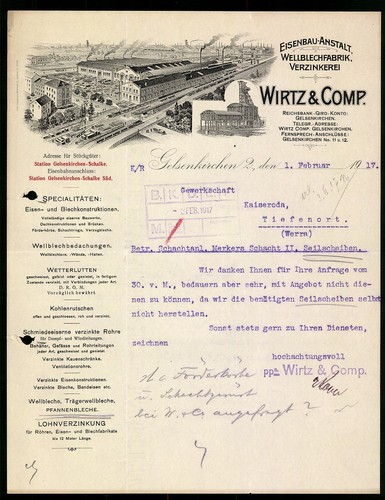 EISENBAU-ANSTALT,
WELLBLECHFABRIK,
VERZINKEREI
WIRTZ & COMP.
REICHSBANK-GIRO-KONTO:
GELSENKIRCHEN.
TELEGR.-ADRESSE:
WIRTZ COMP. GELSENKIRCHEN.
FERNSPRECH-ANSCHLÜSSE:
GELSENKIRCHEN No. 11 u. 12.
Adresse für Stückgüter:
Station Gelsenkirchen-Schalke.
Eisenbahnanschluss:
Station Gelsenkirchen-Schalke Süd.
K/R Gelsenkirchen 2, den 1. Februar 1917.
Gewerkschaft
Kaiseroda,
Tiefenort.
(Werra)
FEB. 1917
Betr. Schachtanl. Merkers Schacht II, Seilscheiben.
Wir danken Ihnen für Ihre Anfrage vom
30. v.M., bedauern aber sehr, mit Angebot nicht die-
nen zu können, da wir die benötigten Seilscheiben selbst
nicht herstellen.
Sonst stets gern zu Ihren Diensten,
zeichnen
hochachtungsvoll
ppa Wirtz & Comp.
Förderkörbe
u. Schachtgerüst
bei W. & Co angefragt?
SPECIALITÄTEN:
Eisen- und Blechkonstruktionen.
Vollständige eiserne Bauwerke,
Dachkonstruktionen und Brücken.
Förderkörbe, Schachtringe, Verzugbleche.
Wellblechbedachungen.
Wellblechtore, -Wände, -Hallen.
WETTERLUTTEN
geschweisst, gefalzt oder genietet, in fertigem
Zustande verzinkt, mit Verbindungen jeder Art.
D. R. G. M.
Vorzüglich bewährt.
Kohlenrutschen
offen und geschlossen, roh und verzinkt.
Schmiedeiserne verzinkte Rohre
für Dampf- und Windleitungen.
Behälter, Gefässe und Rohrleitungen
jeder Art, geschweisst und genietet.
Verzinkte Kauenschränke.
Ventilationsrohre.
Verzinkte Eisenkonstruktionen.
Verzinkte Bleche, Bandeisen etc.
Wellbleche, Trägerwellbleche,
PFANNENBLECHE.
LOHNVERZINKUNG
für Röhren, Eisen- und Blechfabrikate
bis 12 Meter Länge.